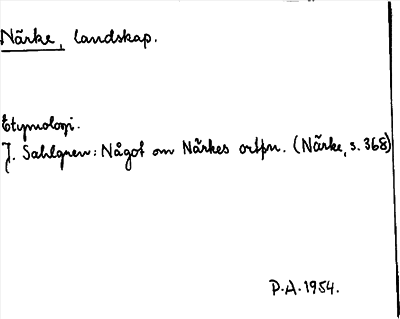 Närke, landskap.
Etymologi.
J. Sahlgren: Något om Närkes ortpn. (Närke, s. 368)
P.A. 1954.